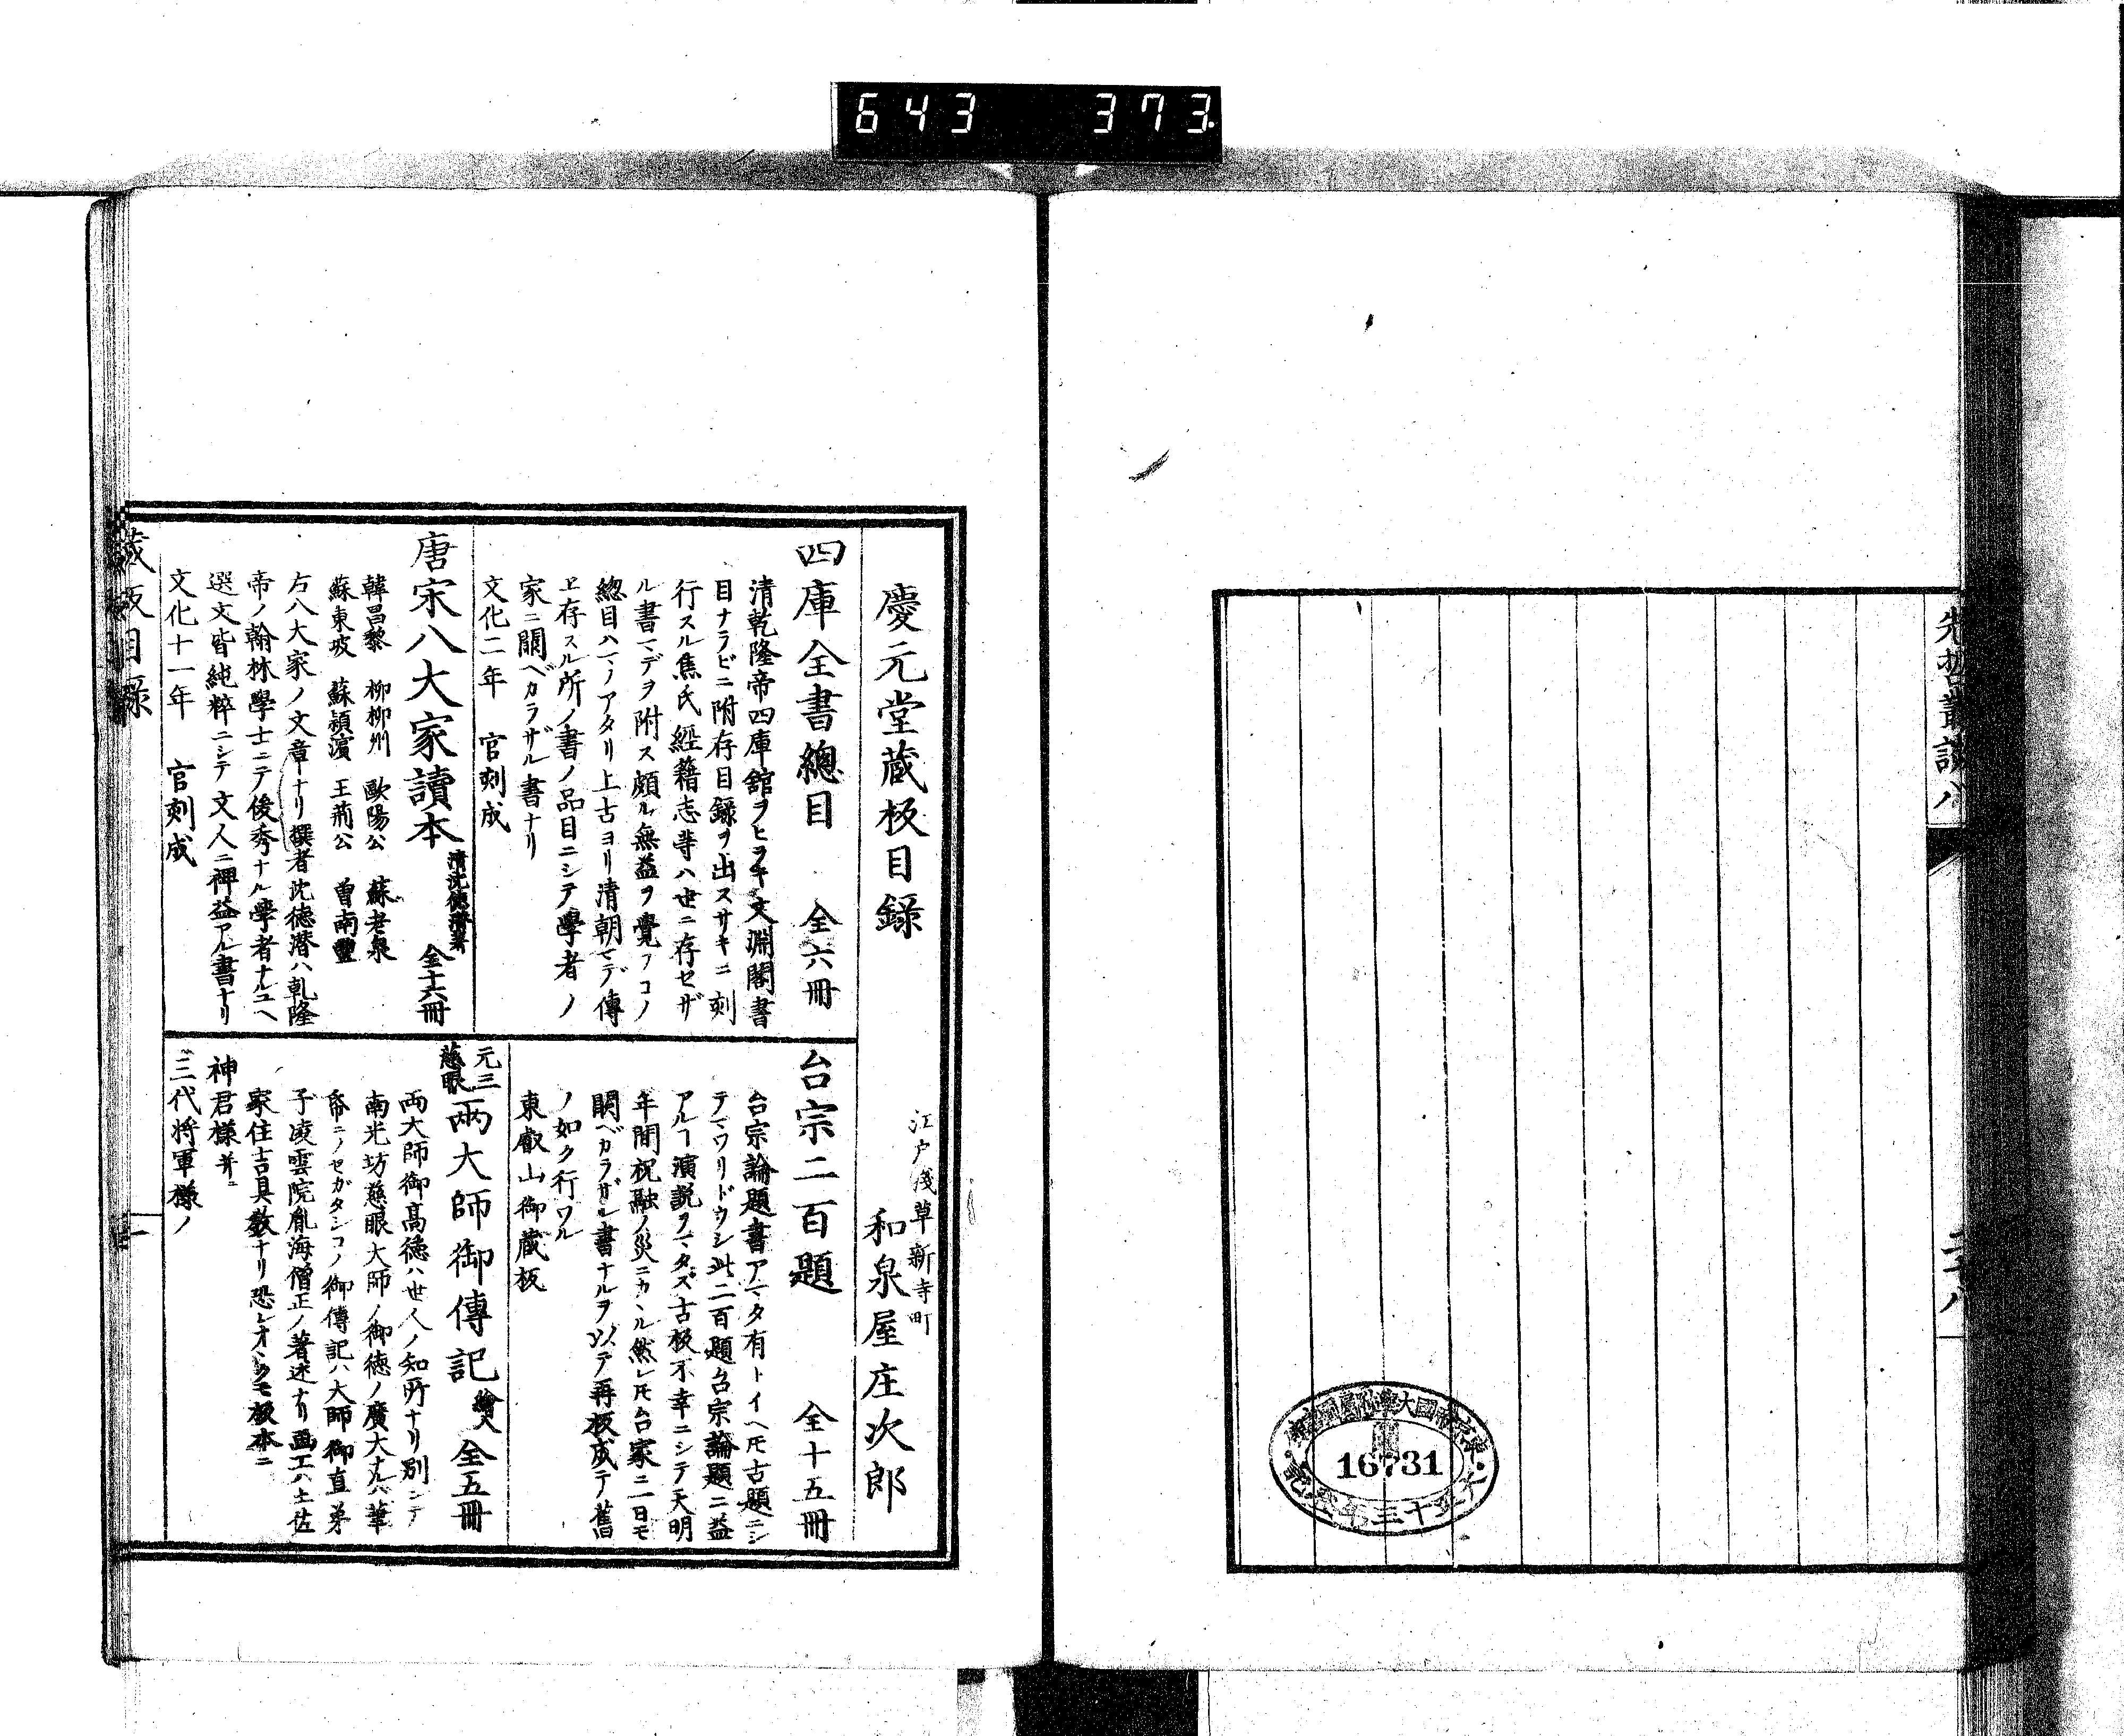 643 373
先哲叢談八
16731
慶元堂蔵板目録
江戸浅草新寺町
和泉屋庄次郎
四庫全書總目 全六冊
清乾隆帝四庫舘ヲヒラキ文淵閣書
目ナラビニ附存目録ヲ出スサキニ刻
行スル焦氏經籍志等ハ世ニ存セザ
ル書マデヲ附ス頗ル無益ヲ覺フコノ
總目ハマノアタリ上古ヨリ清朝マデ傳
ヱ存スル所ノ書ノ品目ニシテ學者ノ
家ニ闕ベカラザル書ナリ
文化二年 官刻成
唐宋八大家讀本 清沈徳潜著 全十六冊
韓昌黎 柳柳州 歐陽公 蘇老泉
蘇東坡 蘇頴濱 王荊公 曽南豐
右八大家ノ文章ナリ撰者沈徳潜ハ乹隆
帝ノ翰林學士ニテ俊秀ナル學者ナルユヘ
選文皆純粹ニシテ文人ニ裨益アル書ナリ
文化十一年 官刻成
台宗二百題 全十五冊
台宗論題書アマタ有トイヘ𪜈古題ニシ
テマワリドウシ此二百題台宗論題ニ益
アルヿ演説ヲマタズ古板不幸ニシテ天明
年間祝融ノ災ニカヽル然レ𪜈台家ニ一日モ
闕ベカラザル書ナルヲ以テ再板成テ舊
ノ如ク行ワル
東叡山御蔵板
元三
慈眼
兩大師御傳記 繪入 全五冊
両大師御高徳ハ世人ノ知所ナリ別シテ
南光坊慈眼大師ノ御徳ノ廣大ナルハ筆
帋ニノセガタシコノ御傳記ハ大師御直弟
子凌雲院胤海僧正ノ著述ナリ画工ハ土佐
家住吉具教ナリ恐レオヽクモ板本ニ
神君様并ニ
三代将軍様ノ
蔵板目録
一